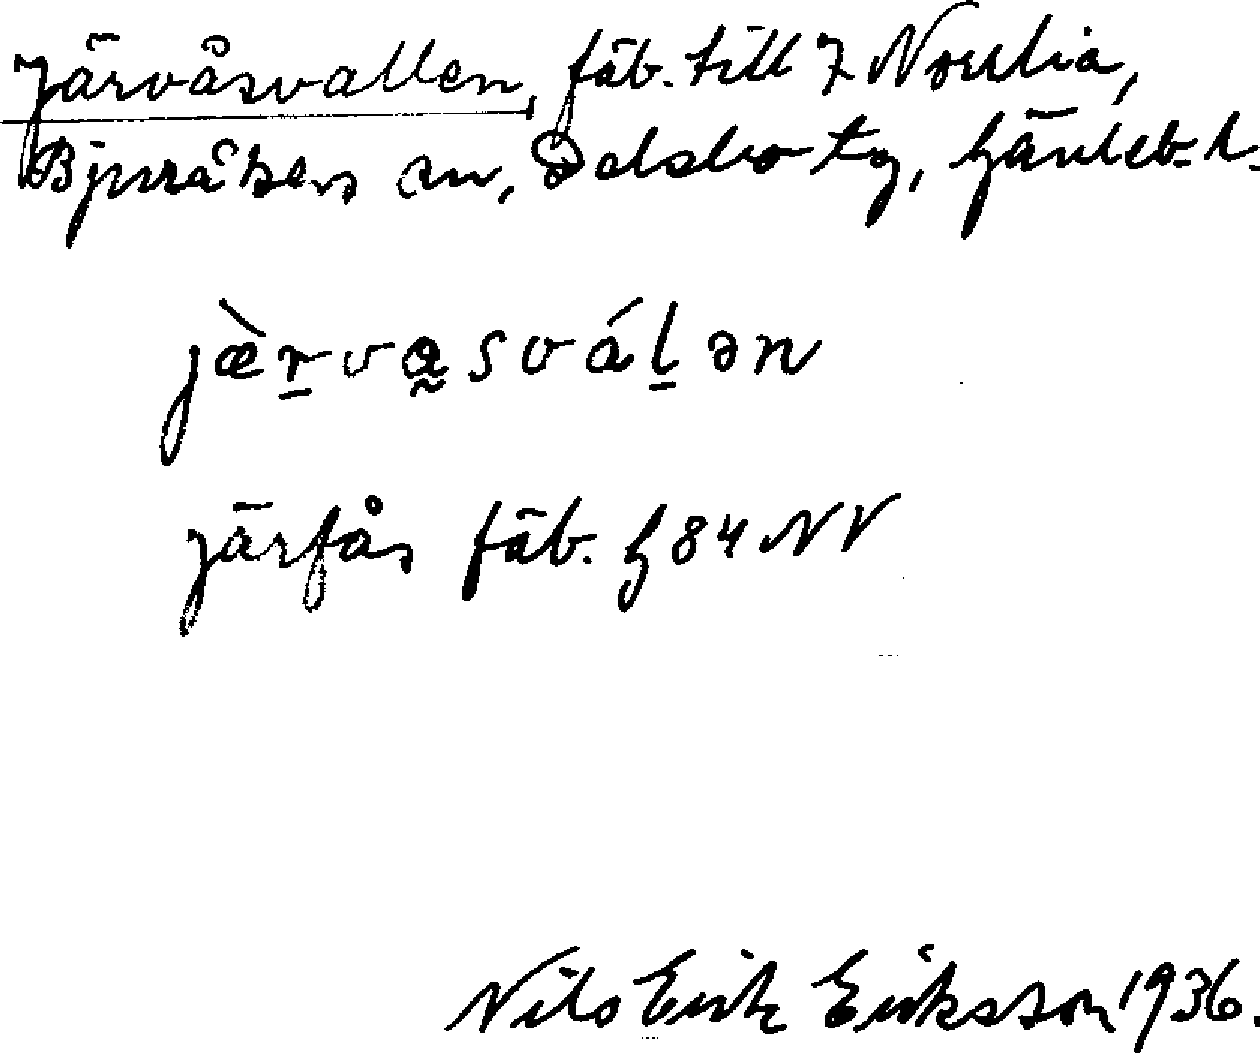 Järvåsvallen, fäb. till 7 Norrlia,
Bjuråkers sn, Delsbo tg, Gävleb. l.
jæ̀r̠va̰sváḻən
Järfås fäb. G 84 NV
Nils Erik Eriksson 1936.